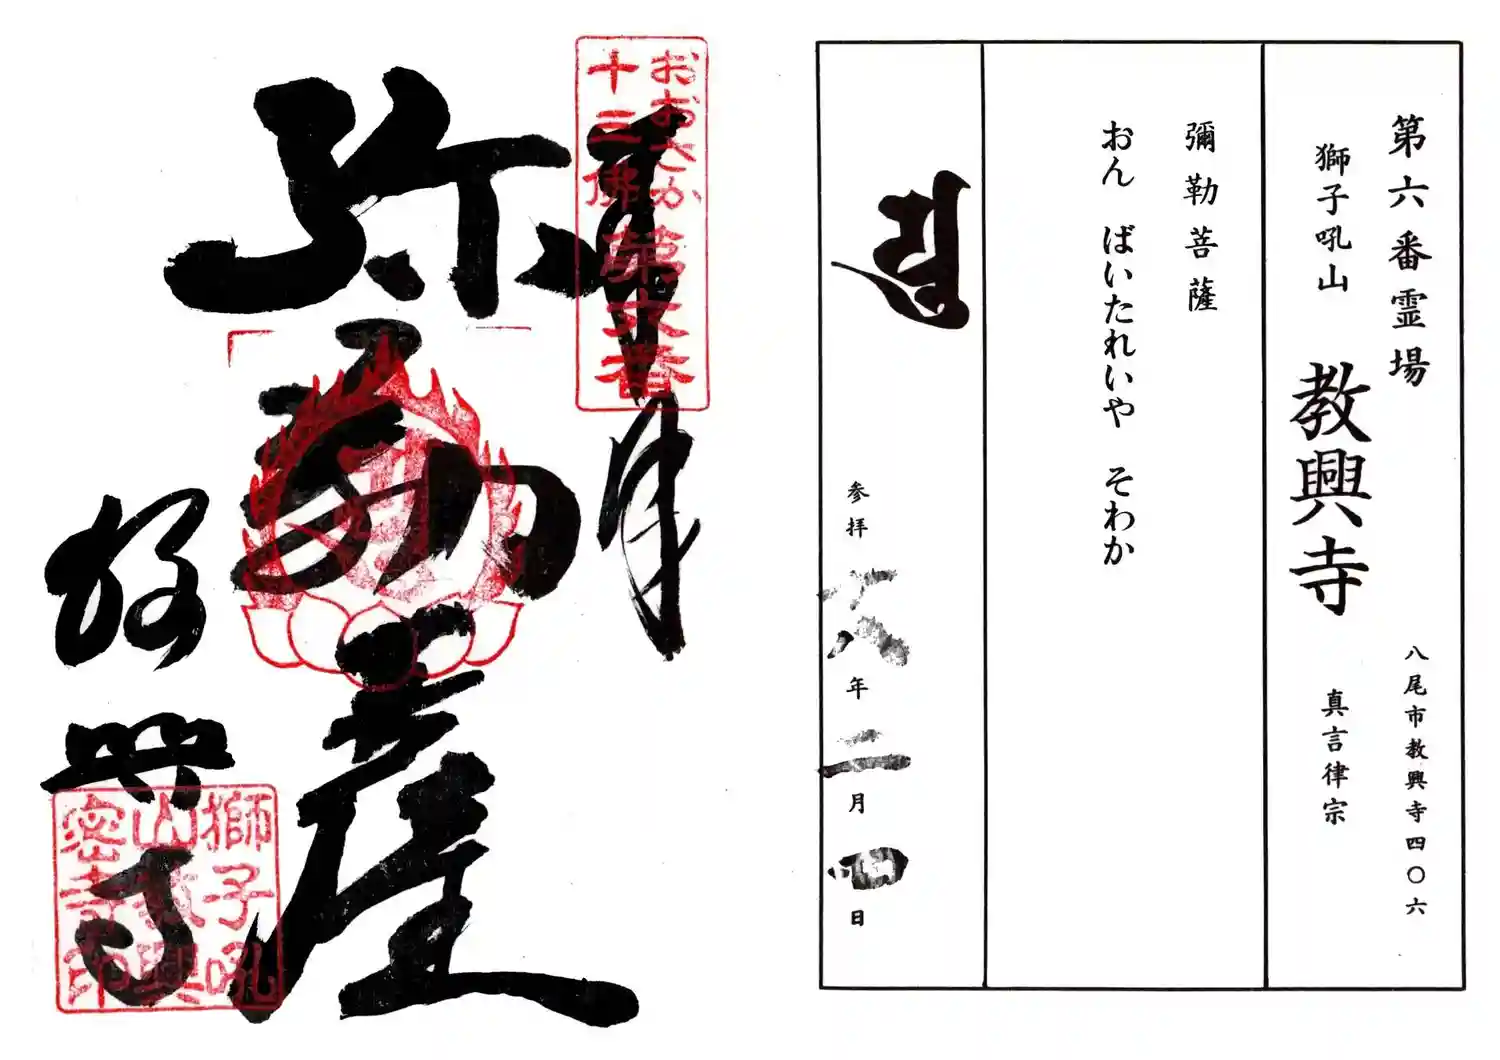 第六番霊場
八尾市教興寺四〇六
獅子吼山 教興寺 真言律宗
彌勒菩薩
おん ばいたれいや そわか
参拝 六八年二月四日
おおさか
十三佛
第六番
奉拝
弥勒菩薩
教興寺
獅子吼
山教興
密寺印